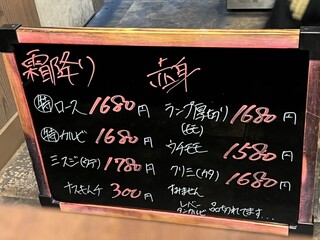 霜降り
㊕ロース 1680円
㊕カルビ 1680円
ミスジ(ウデ) 1780円
ナムキムチ 300円
赤身
ランプ厚切り 1680円
(モモ)
ウチモモ 1580円
クリミ(カタ) 1680円
すみません
レバー
タンカルビ 品切れです...